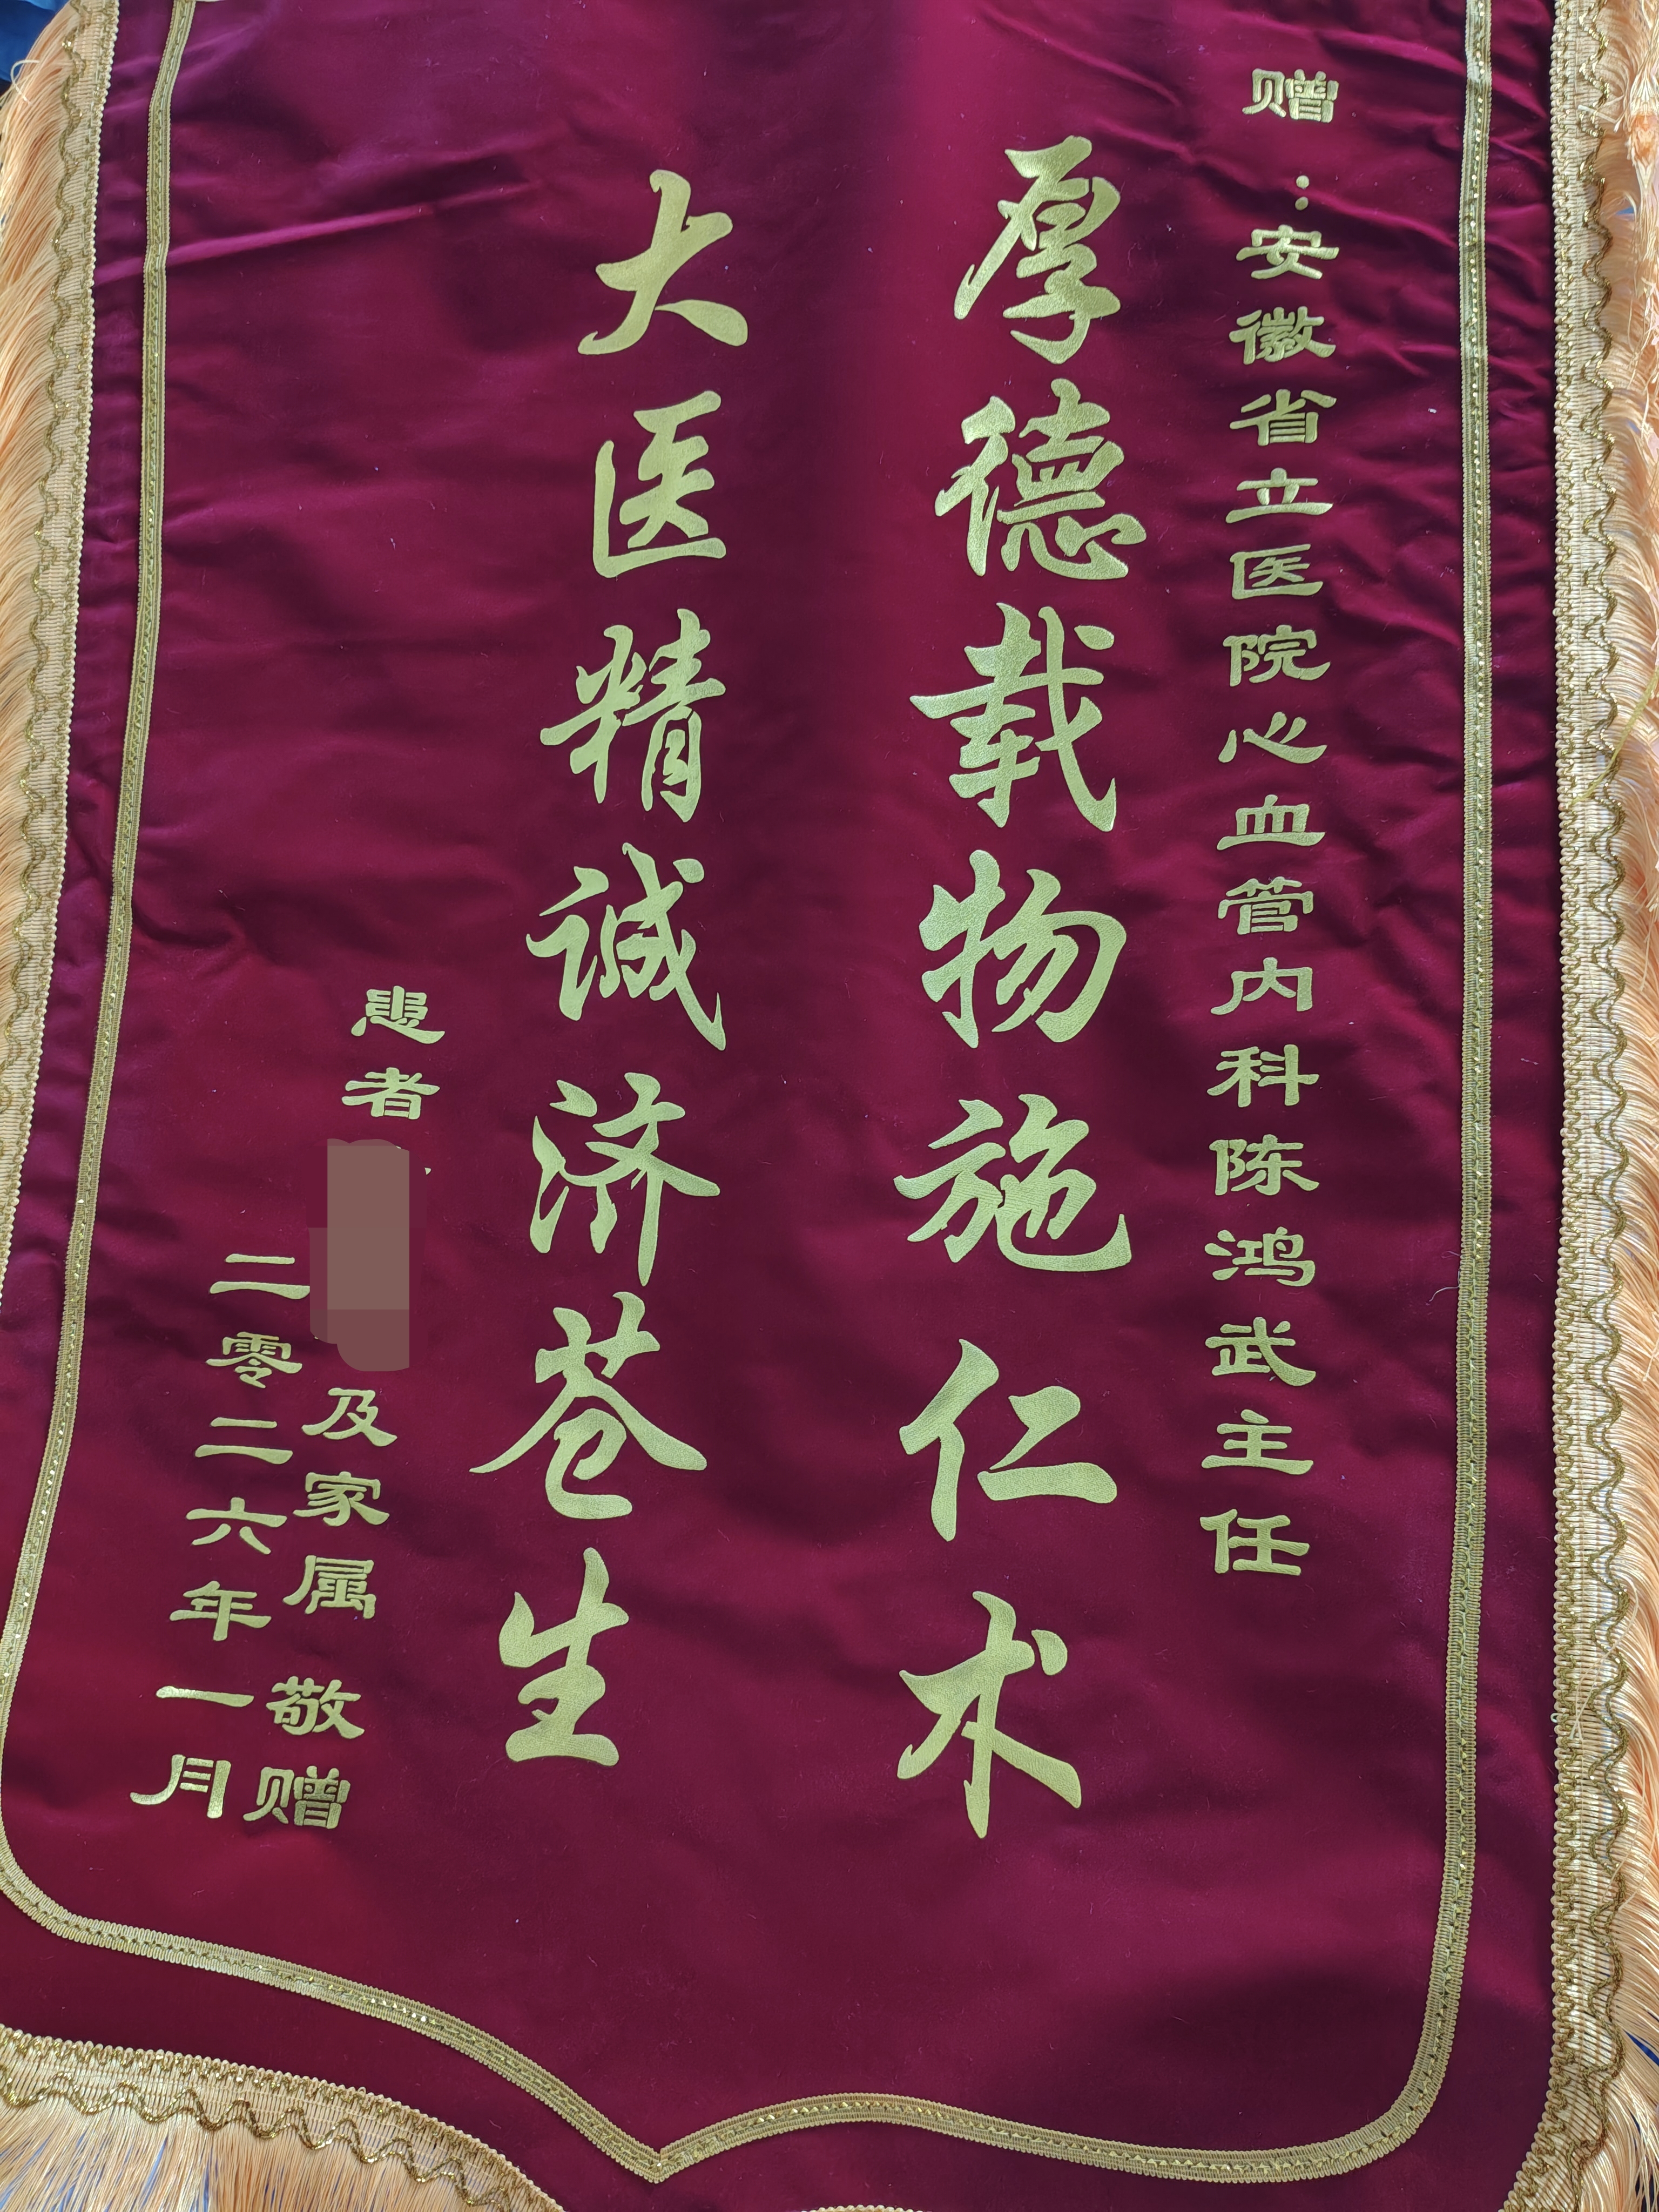 赠：安徽省立医院心血管内科陈鸿武主任
厚德载物施仁术
大医精诚济苍生
患者 及家属 敬赠
二零二六年一月